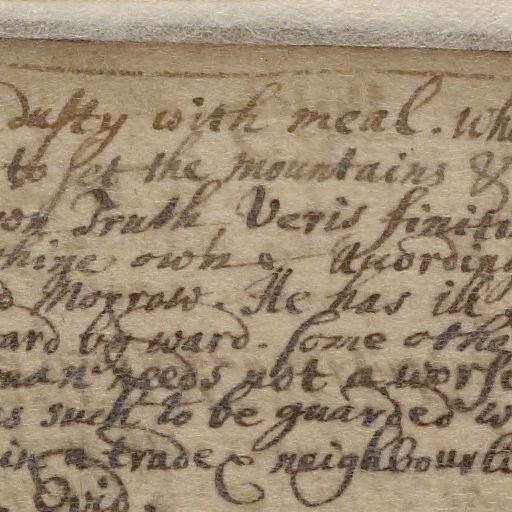 dusty with meal. Wh
to set the Mountains &
on Truth, Veris finiti
hine owne Auording
d Morrow. He has ill
ard by ward. some othe
man needs not a worse
s such to be guarded w
in a trade & neighbourli
Ovid.